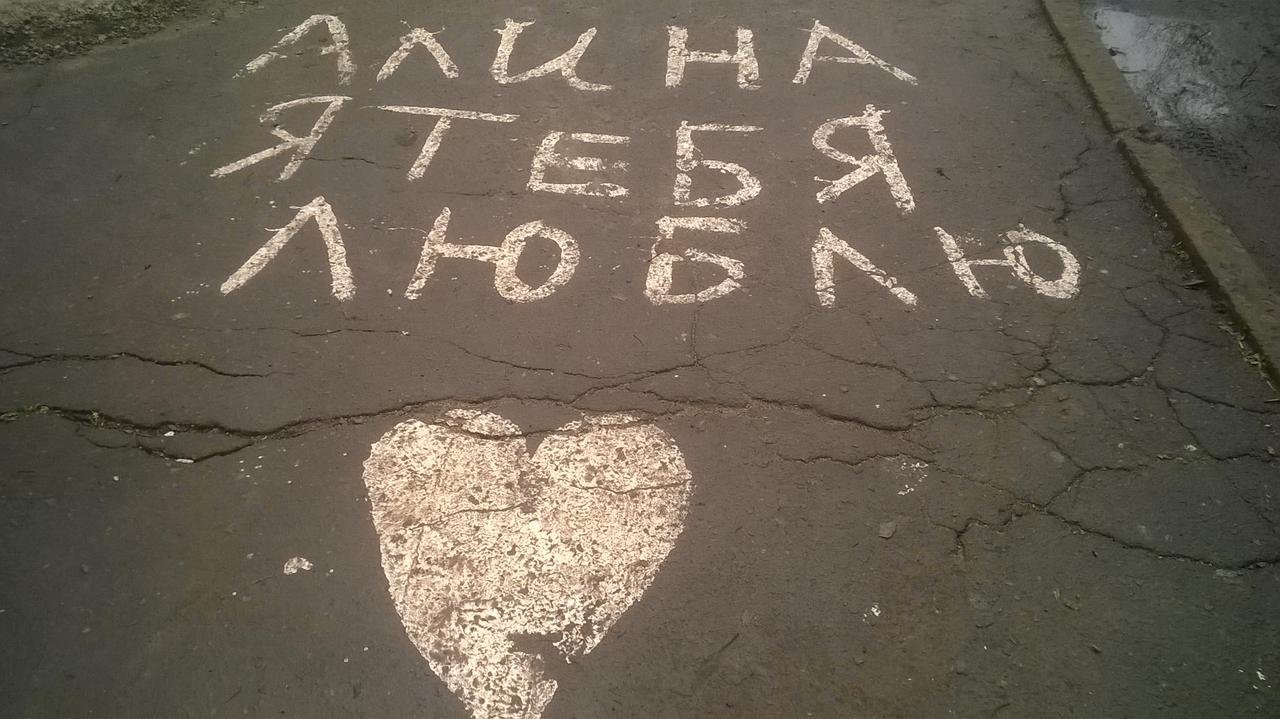 АЛИНА
Я ТЕБЯ
ЛЮБЛЮ